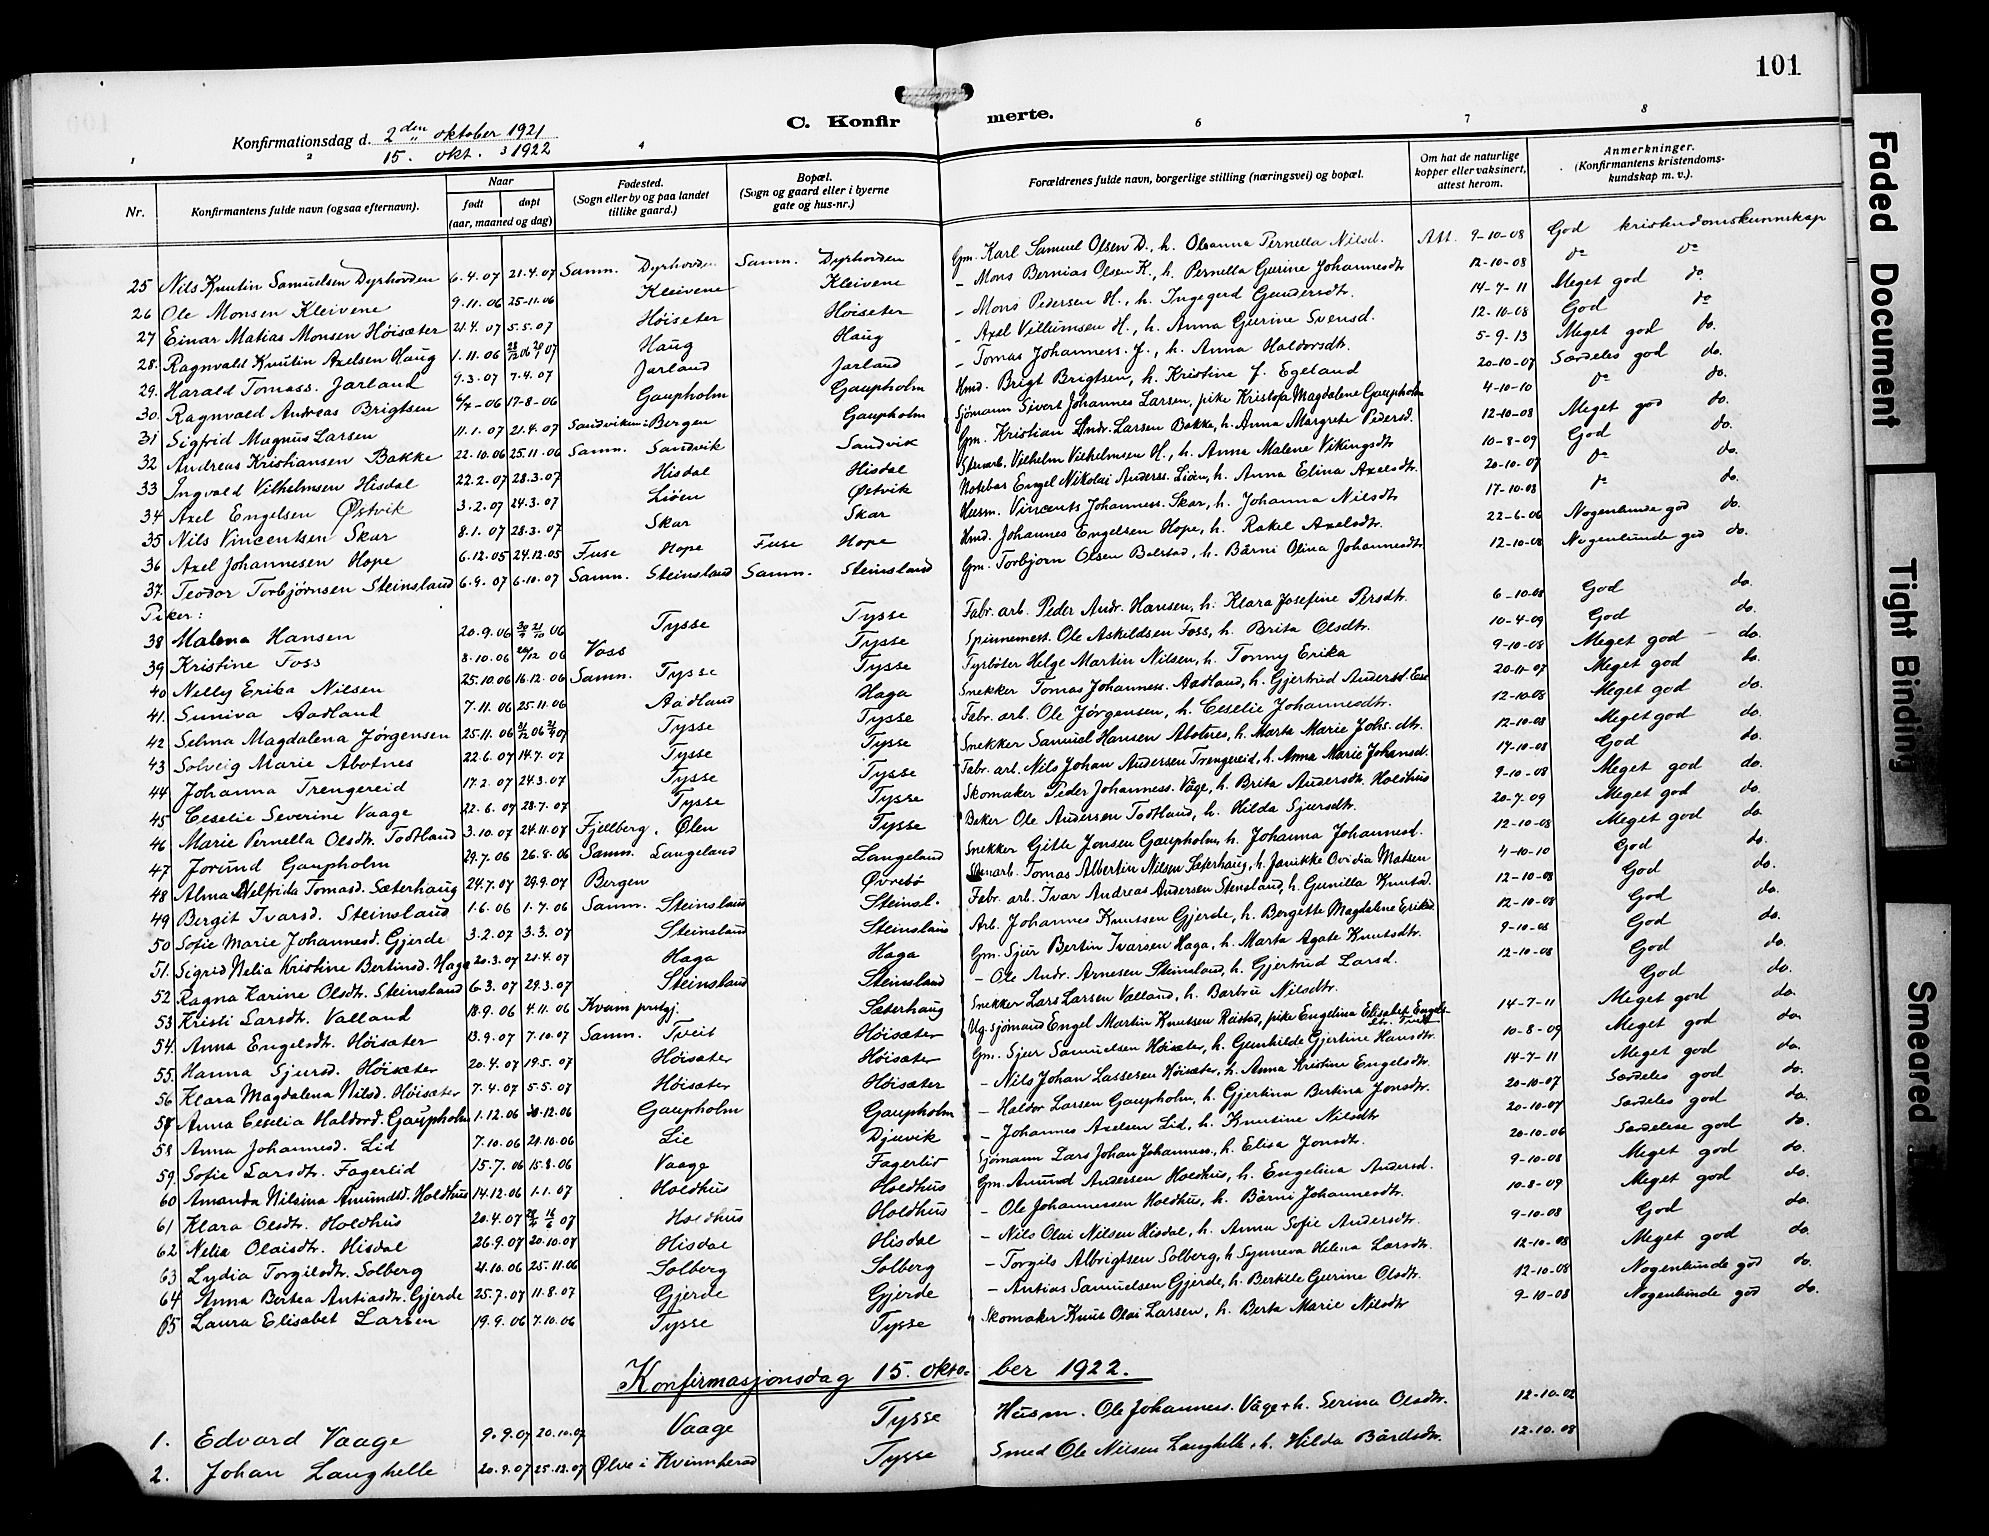 101
C. Konfirmerte.
Konfirmationsdag d. 2den oktober 1921
15. okt. 1922
1 2 3 4 6 7 8
Nr.
Konfirmantens fulde navn (ogsaa efternavn).
Naar
født døpt
(aar, maaned og dag)
Fødested.
(Sogn eller by og paa landet
tillike gaard.)
Bopæl.
(Sogn og gaard eller i byerne
gate og hus-nr.)
Forældrenes fulde navn, borgerlige stilling (næringsvei) og bopæl.
Om hat de naturlige
kopper eller vaksinert,
attest herom.
Anmerkninger.
(Konfirmantens kristendoms-
kundskap m. v.).
25 Nils Knutin Samuelsen Dyrhovden 6.4.07 21.4.07 Samn. Dyrhovden Samn. Dyrhovden Gm. Karl Samuel Olsen D., h. Oleanna Pernella Nilsd. Att. 9-10-08 God kristendomskunnskap
26 Ole Monsen Kleivene 9.11.06 25-11.06 Kleivene Kleivene - Mons Bernias Olsen K., h. Pernella Gurine Johannesdtr 12-10-08 do do
27 Einar Matias Monsen Høisæter 21.4.07 5.5.07 Høiseter Høiseter - Mons Pedersen H., h. Ingegerd Gundersdtr. 14-7-11 Meget god do.
28. Ragnvald Knutin Axelsen Haug 1.11.06 28/12 06 20/1 07 Haug Haug - Axel Villumsen H., h. Anna Gurine Svensd. 12-10-08 God do
29. Harald Tomass. Jarland 9.3.07 7.4.07 Jarland Jarland - Tomas Johanness. J., h. Anna Haldorsdtr. 5-9-13 Meget god do.
30. Ragnvald Andreas Brigtsen 6/7-06 17-8-06 Gaupholm Gaupholm Hmd. Brigt Brigtsen, h. Kristine f. Egeland 20-10-07 Særdeles god do.
31 Sigfrid Magnus Larsen 11.1.07 21.4.07 Sandviken i Bergen Gaupholm Sjømann Sivert Johannes Larsen, pike Kristofa Magdalene Gaupholm 4-10-10 do do.
32 Andreas Kristiansen Bakke 22.10.06 25.11.06 Samn. Sandvik Sandvik Gm. Kristian Andr. Larsen Bakke, h. Anna Margrete Pedersd. 12-10-08 Meget god do.
33 Ingvald Vilhelmsen Hisdal 22.2.07 28.3.07 Hisdal Hisdal Vilhelm Vilhelmsen H., h. Anna Malene Vikingsdtr 10-8-09 God do.
34 Axel Engelsen Østvik 3.2.07 24.3.07 Liøen Østvik Notebas Engel Nikolai Anderss. Liøn, h. Anna Elina Axelsdtr. 20-10-07 do do.
35 Nils Vincentsen Skar 8.1.07 28.3.07 Skar Skar Husm. Vincents Johanness. Skar, h. Johanna Nilsdtr 17-10-08 do do.
36 Axel Johannesen Hope 6.12.05 24.12.05 Fuse Hope Fuse Hope Hmd. Johannes Engelsen Hope, h. Rakel Axelsdtr. 22-6-06 Nogenlunde god do.
37. Teodor Torbjørnsen Steinsland 6.9.07 6.10.07 Samn. Steinsland Samn. Steinsland Gm. Torbjørn Olsen Bolstad, h. Bårni Olina Johannesdtr 12-10-08 Nogenlunde god do.
Piker:
38 Malena Hansen 20.9.06 30/9 21/10 06 Tysse Tysse Fabr. arb. Peder Andr. Hansen, h. Klara Josefine Persdtr. 6-10-08 God do.
39 Kristine Foss 8.10.06 12 06 Voss Tysse Spinnemest. Ole Askildsen Foss, h. Brita Olsdtr. 10-4-09 God do.
40 Nelly Erika Nilsen 25.10.06 16.12.06 Samn. Tysse Tysse Fyrbøter Helge Martin Nilsen, h. Tonny Erika 9-10-08 Meget god - do.
41. Suniva Aadland 7.11.06 25.11.06 Aadland Haga Snekker Tomas Johanness. Aadland, h. Gjertrud Andersd. 20-11-07 Meget god do.
42 Selma Magdalena Jørgensen 25.11.06 Tysse Tysse Fabr. arb. Ole Jørgensen, h. Ceselie Johannesdtr. 12-10-08 Meget god do.
43 Solveig Marie Abotnes 22.6.07 14.7.07 Tysse Tysse Snekker Samuel Hansen Abotnes, h. Marta Marie Johs. dtr. 12-10-08 Meget god do.
44 Johanna Trengereid 17.2.07 24.3.07 Tysse Tysse Fabr. arb. Nils Johan Andersen Trengereid, h. Anna Marie Johansd. 17-10-08 God do.
45 Ceselie Severine Vaage 22.6.07 28.7.07 Tysse Tysse Skomaker Peder Johanness. Våge, h. Brita Andersdtr. Holdhus 9-10-08 Meget god do.
46 Marie Pernella Olsdtr. Todtland 3.10.07 24.11.07 Fjellberg. Ølen Tysse Baker Ole Andersen Todtland, h. Hilda Sjursdtr. 20-7-09 Meget god do.
47 Jorund Gaupholm 29.7.06 26.8.06 Samn. Langeland Langeland Snekker Gitle Jonsen Gaupholm, h. Johanna Johannesd. 12-10-08 Meget god do
48 Alma Delfrida Tomasd. Sæterhaug 24.7.07 29.9.07 Bergen Øvrebø Tomas Albertin Nilsen Sæterhaug, h. Janikke Ovidia Matsen 4-10-10 God do.
49 Bergit Ivarsd. Steinsland 1.6.06 1.7.06 Samn. Steinsland Steinsl. Fabr. arb. Ivar Andreas Andersen Stensland, h. Gunilla Knutsd. 12-10-08 God do.
50 Sofie Marie Johannesd. Gjerde 3.2.07 3.3.07 Steinsland Steinsland Arb. Johannes Knutsen Gjerde, h. Bergitte Magdalene Eriksd 12-10-08 God do.
51. Sigrid Nelia Kristine Bertinsd. Haga 20.3.07 21.4.07 Haga Haga Gm. Sjur Bertin Ivarsen Haga, h. Marta Agate Knutsdtr. 9-10-08 God do.
52 Ragna Karine Olsdtr. Steinsland 6.3.07 29.3.07 Steinsland Steinsland - Ole Andr. Arnesen Steinsland, h. Gjertrud Larsd. 12-10-08 God do.
53 Kristi Larsdtr. Valland 18.9.06 4.11.06 Kvam prstgj. Sæterhaug Snekker Lars Larsen Valland, h. Barbru Nilsdtr. God do.
54. Anna Engelsdtr. Høisæter 13.9.07 7.10.07 Samn. Tveit Høisæter Ug. sjømand Engel Martin Knutsen Røstad, pike Engelina Elisabet Engels- dtr. Tveit 14-7-11 Meget god do.
55. Hanna Sjursd. Høisæter 20.4.07 19.5.07 Høisæter Høisæter Gm. Sjur Samuelsen Høisæter, h. Gunhilde Gjertine Hansdtr. 10-8-09 Meget god do.
56 Klara Magdalena Nilsd. Høisæter 7.4.07 5.5.07 Høisæter Høisæter - Nils Johan Lassesen Høisæter, h. Anna Kristine Engelsdtr. 14-7-11 Meget god do.
57 Anna Ceselia Haldord. Gaupholm 1.12.06 20.12.06 Gaupholm Gaupholm - Haldor Larsen Gaupholm, h. Gjertina Bertina Jonsdtr. 20-10-07 Særdeles god do.
58 Anna Johannesd. Lid 7.10.06 21.10.06 Lie Djuvik - Johannes Axelsen Lid, h. Knutine Nilsdtr 20-10-07 Særdeles god do.
59. Sofie Larsdtr. Fagerlid 15.7.06 15.8.06 Vaage Fagerlid Sjømann Lars Johan Johanness., h. Elisa Jonsdtr. 20-10-06 Særdelese god do.
60 Amanda Nilsina Amundsd. Holdhus 14.12.06 1.1.07 Holdhus Holdhus Gm. Amund Andersen Holdhus, h. Engelina Andersd. 9-10-08 Meget god do.
61 Klara Olsdtr. Holdhus 20.4.07 Holdhus Holdhus - Ole Johannessen Holdhus, h. Bårni Johannesdtr. 10-8-09 Meget god do.
62 Nelia Olaisdtr. Hisdal 26.9.07 20.10.07 Hisdal Hisdal - Nils Olai Nilsen Hisdal, h. Anna Sofie Andersdtr. 9-10-08 God do.
63 Lydia Torgilsdtr. Solberg 21.10.06 25.11.06 Solberg Solberg - Torgils Albrigtsen Solberg, h Synneva Helena Larsdtr. 12-10-08 Meget god do.
64 Anna Bertea Antiasdtr. Gjerde 25.7.07 11.8.07 Gjerde Gjerde - Antias Samuelsen Gjerde, h. Bertile Gurine Olsdtr. 12-10-08 Nogenlunde god do.
65 Laura Elisabet Larsen 19.9.06 7.10.06 Tysse Tysse Skomaker Knut Olai Larsen, h. Berta Marie Nilsdtr 9-10-08 Nogenlunde god do.
Konfirmasjonsdag 15. oktober 1922.
1. Edvard Vaage 9.9.07 20.10.07 Vaage Tysse Husm. Ole Johanness. Våge + h. Serina Olsdtr. 12-10-02
2. Johan Langhelle 20.9.07 25.12.07 Ølve i Kvinnherad Tysse Smed Ole Nilsen Langhelle + h. Hilda Bårdsdtr. 12-10-08
Faded Document
Tight Binding
Smeared